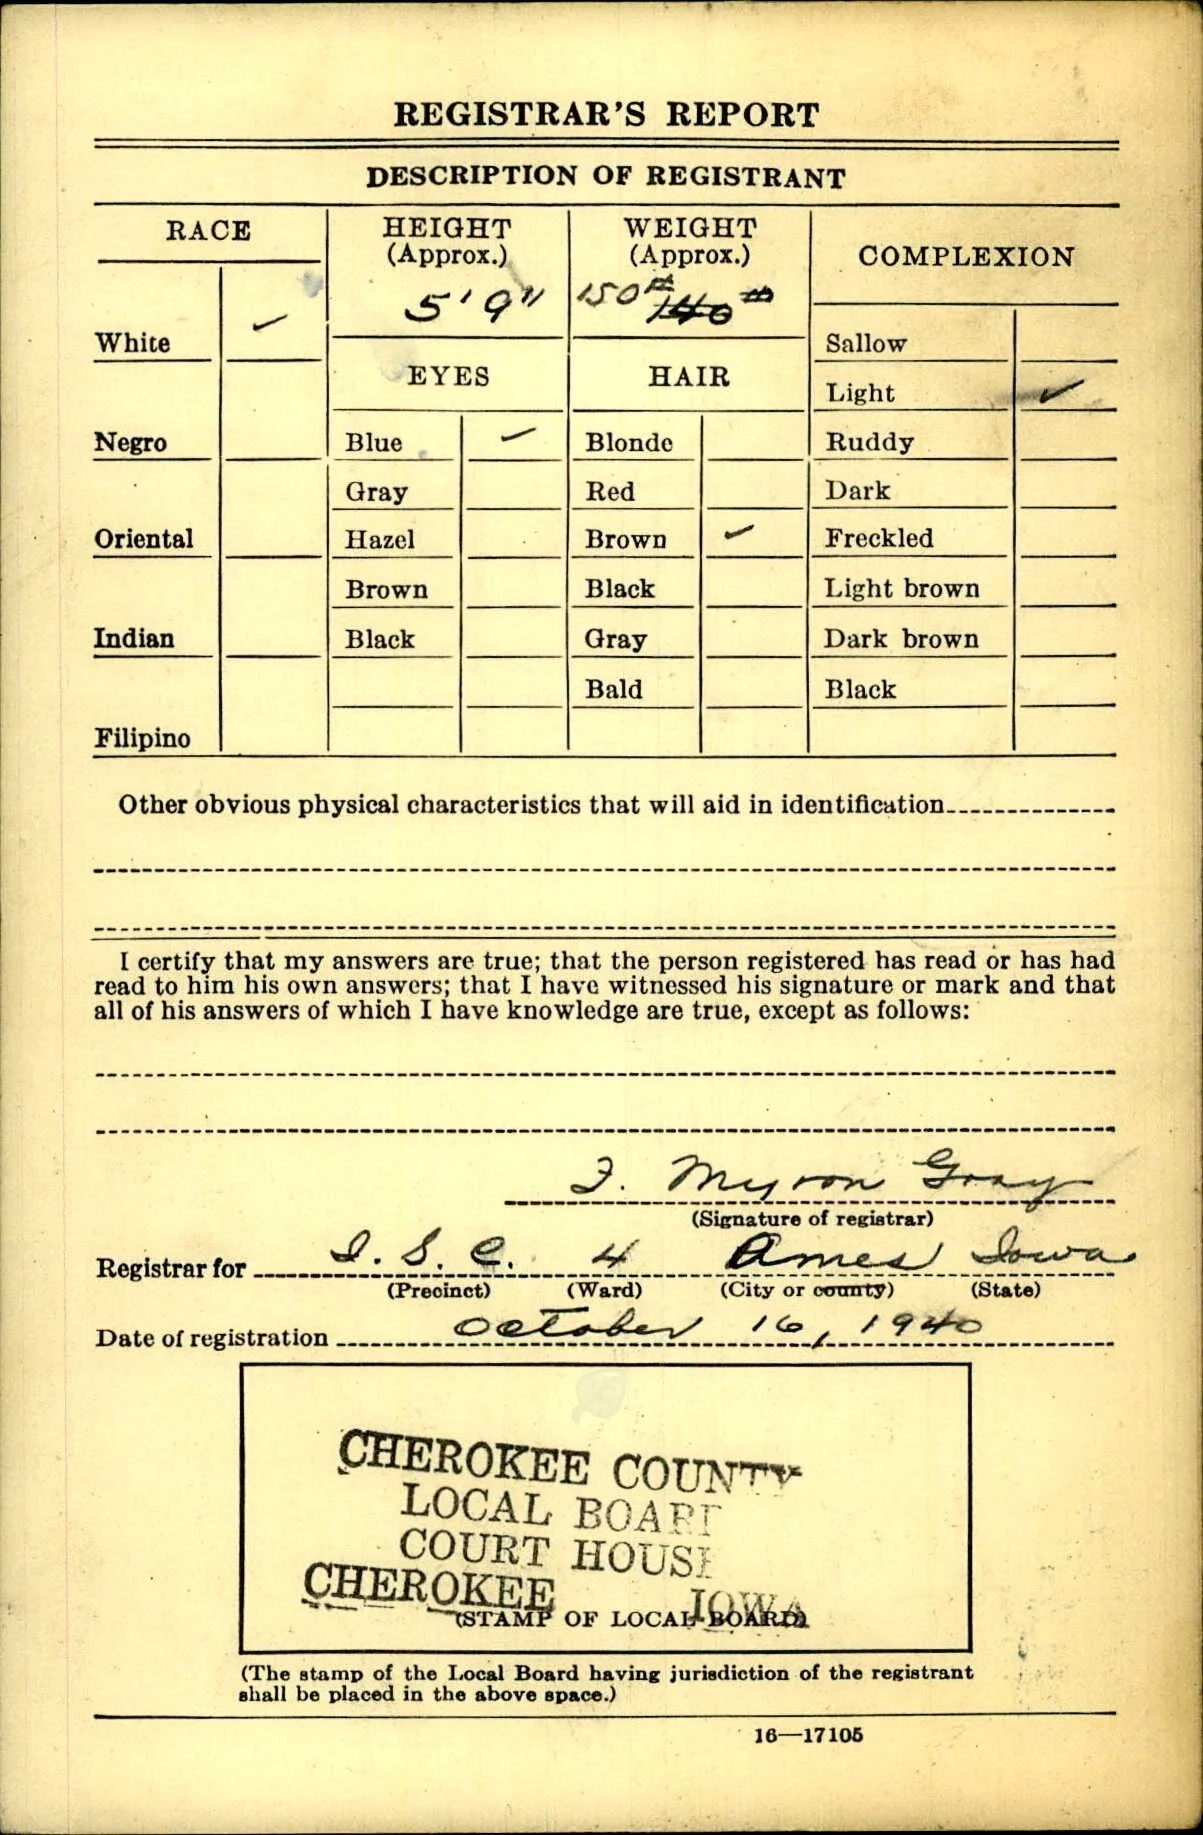 REGISTRAR'S REPORT
DESCRIPTION OF REGISTRANT
RACE
HEIGHT
(Approx.)
WEIGHT
(Approx.)
COMPLEXION
5'9"
150# 140#
White ✓
EYES
HAIR
Sallow
Light ✓
Negro
Blue ✓
Blonde
Ruddy
Gray
Red
Dark
Oriental
Hazel
Brown ✓
Freckled
Brown
Black
Light brown
Indian
Black
Gray
Dark brown
Bald
Black
Filipino
Other obvious physical characteristics that will aid in identification
I certify that my answers are true; that the person registered has read or has had
read to him his own answers; that I have witnessed his signature or mark and that
all of his answers of which I have knowledge are true, except as follows:
F. Myron Gray
(Signature of registrar)
Registrar for I. S. C. 4 Ames Iowa
(Precinct) (Ward) (City or county) (State)
Date of registration October 16, 1940
CHEROKEE COUNTY
LOCAL BOARD
COURT HOUSE
CHEROKEE IOWA
(STAMP OF LOCAL BOARD)
(The stamp of the Local Board having jurisdiction of the registrant
shall be placed in the above space.)
16—17105